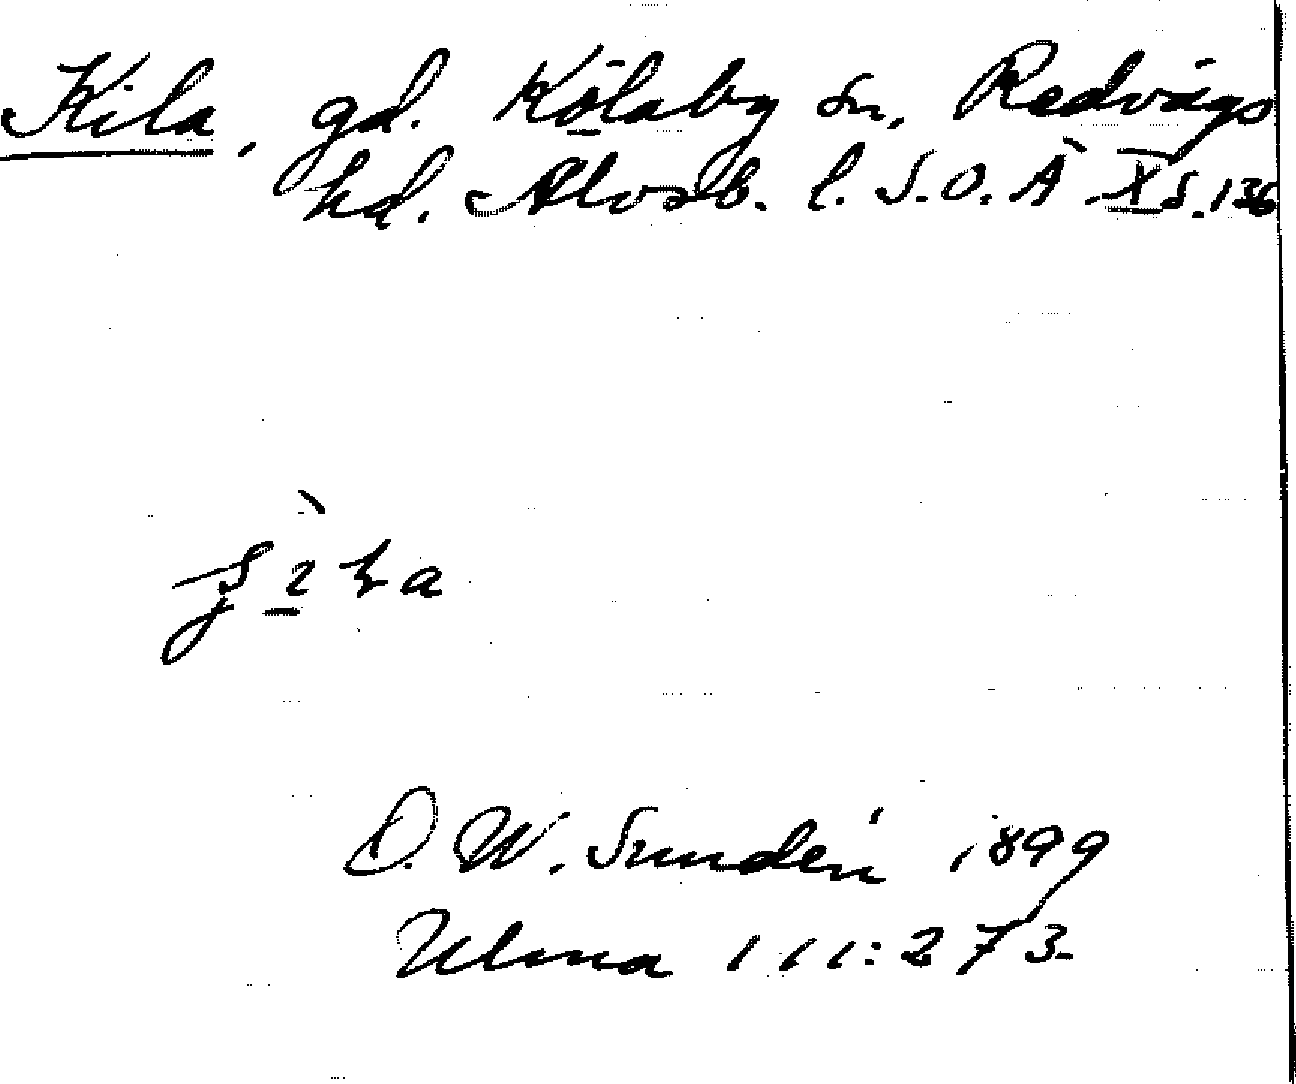 Kila, gd. Kölaby sn, Redvägs
hd. Älvsb. l. S.O.Ä. X s. 136
O. W. Sundén 1899
Ulma 111:273.